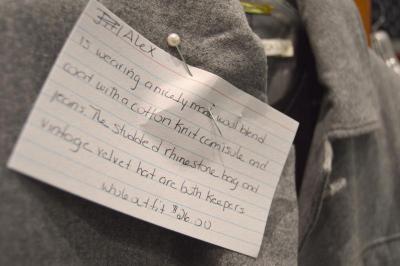 Alex
is wearing a nicely mod wool blend
coat with a cotton knit camisole and
jeans. The studded rhinestone bag and
vintage velvet hat are both keepers
whole outfit $26.00